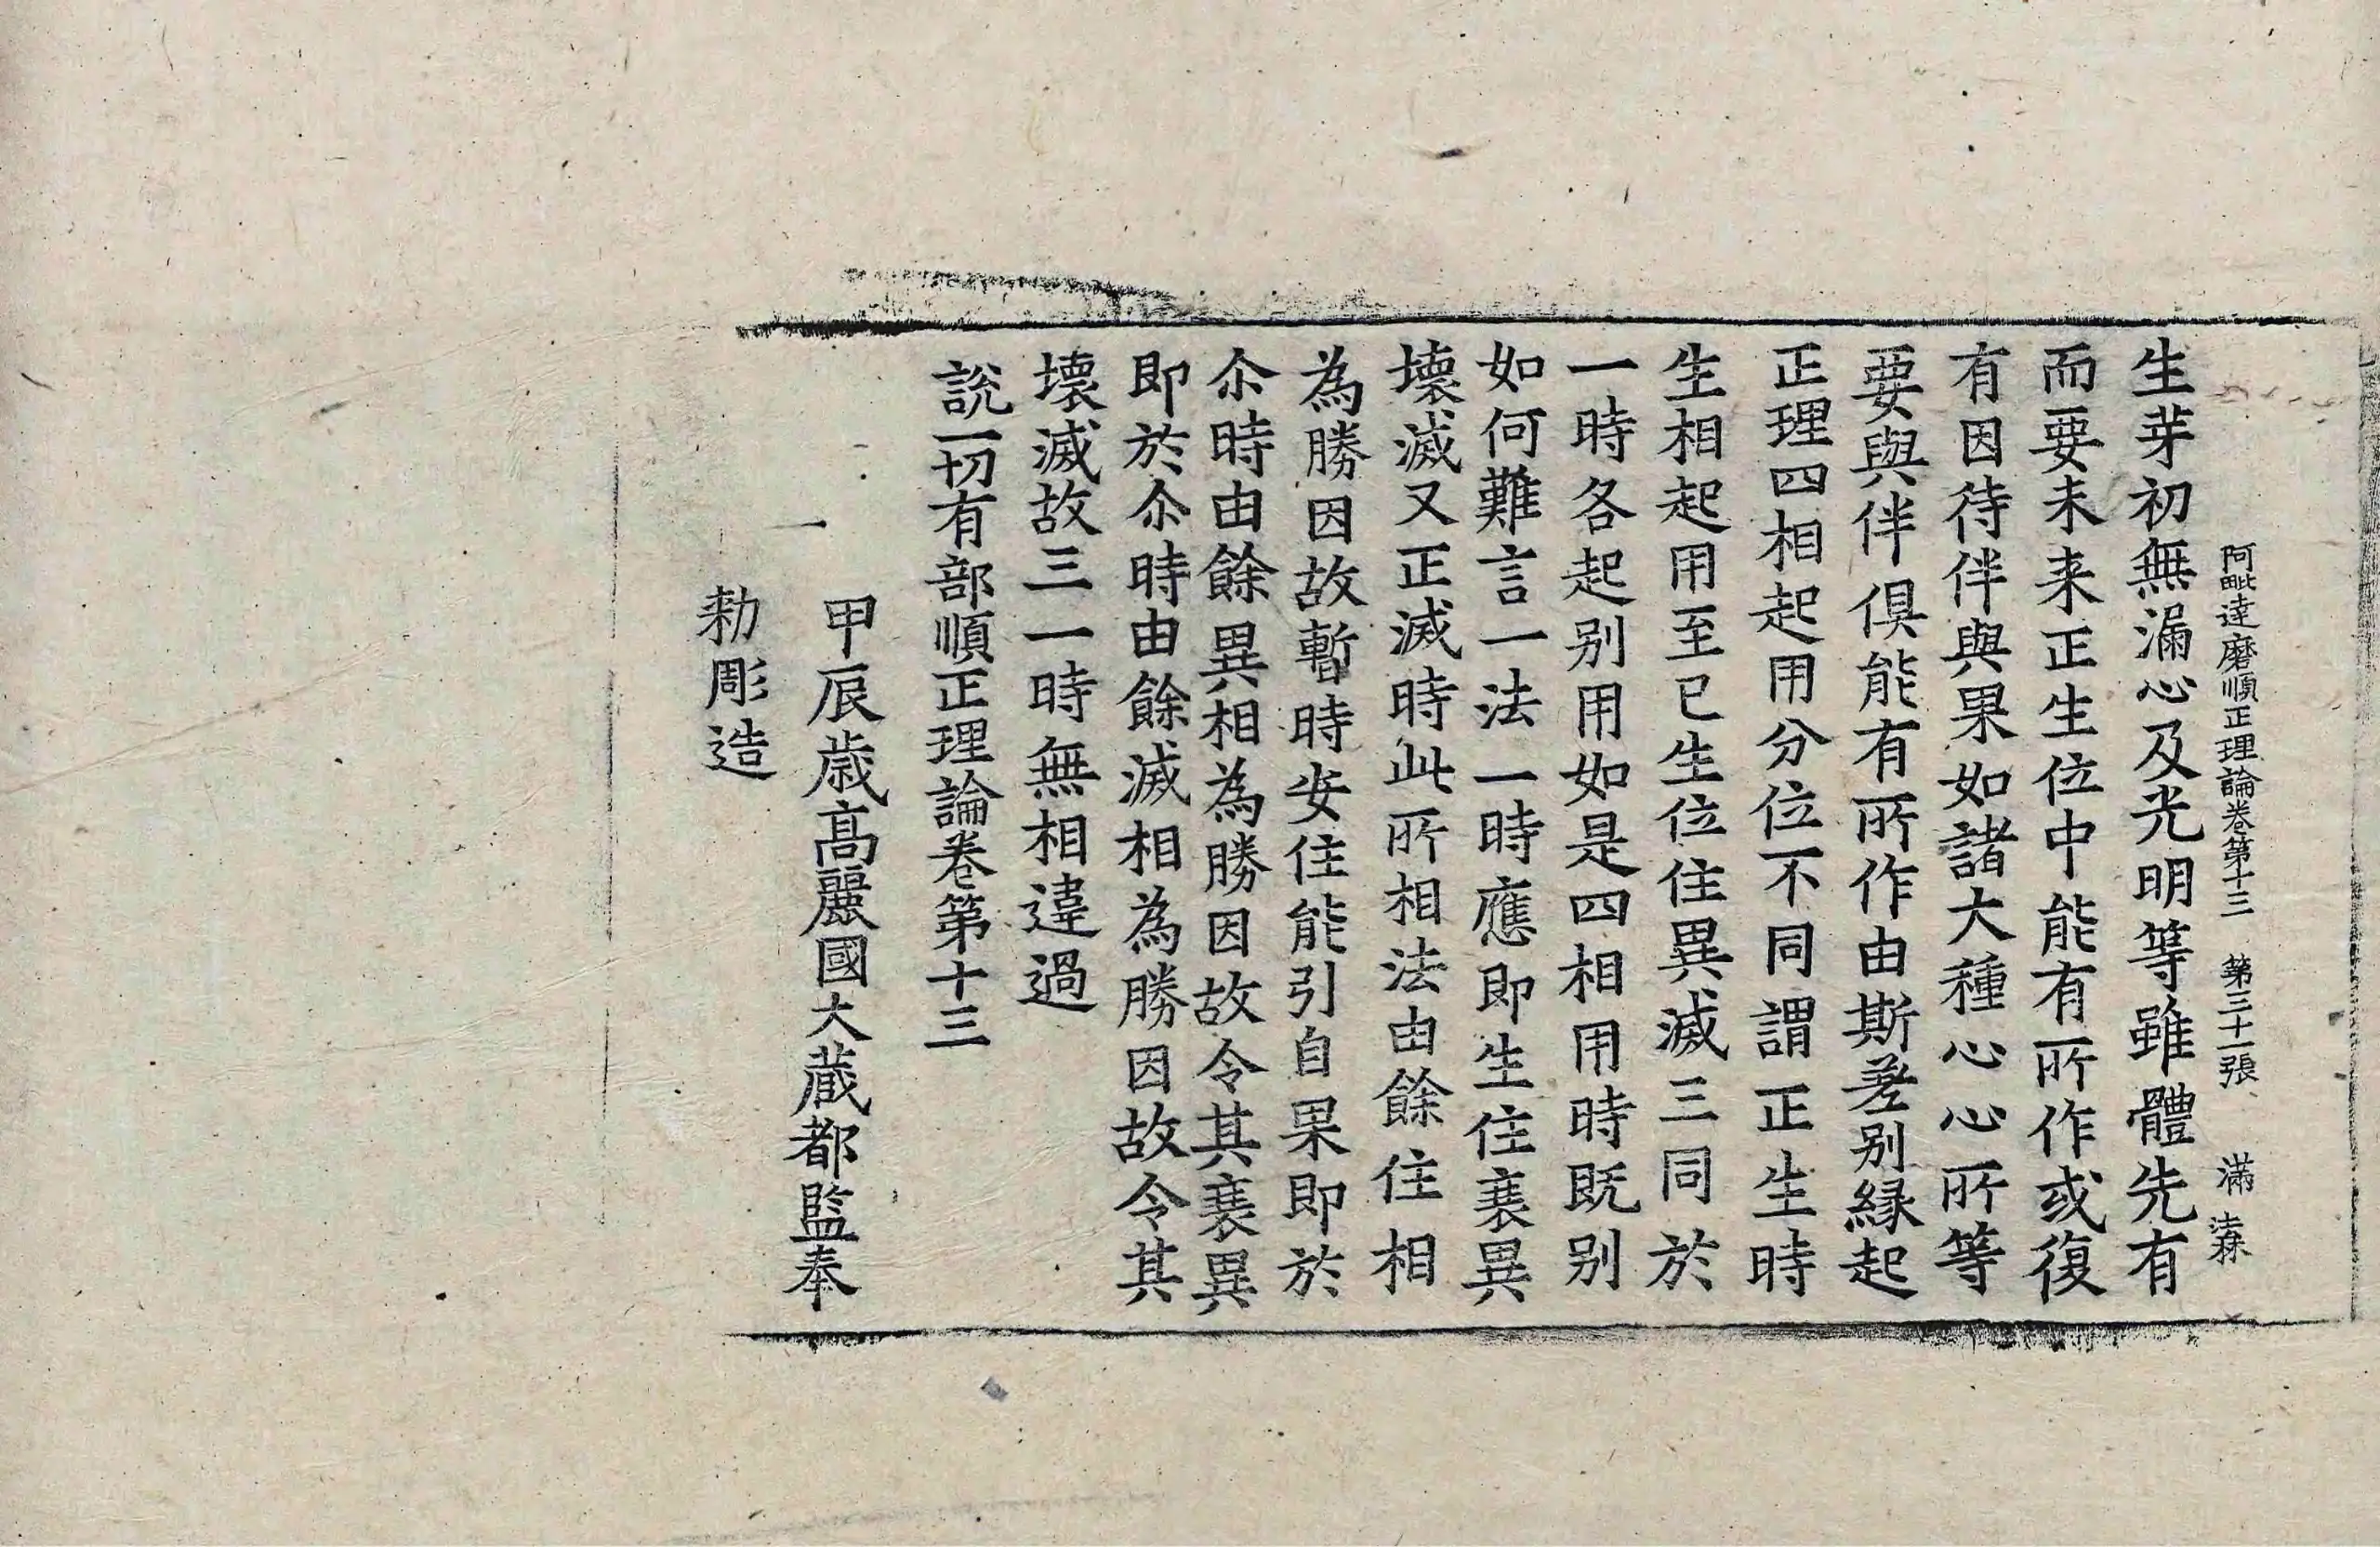 阿毗達磨順正理論卷第十三　第三十一張　满
生芽初無漏心及光明等雖體先有
而要未来正生位中能有所作或復
有因待伴與果如諸大種心心所等
要與伴俱能有所作由斯差别縁起
正理四相起用分位不同謂正生時
生相起用至已生位住異滅三同於
一時各起别用如是四相用時既别
如何難言一法一時應即生住衰異
壞滅又正滅時此所相法由餘住相
為勝因故暫時安住能引自果即於
尒時由餘異相為勝因故令其衰異
即於尒時由餘滅相為勝因故令其
壞滅故三一時無相違過
說一切有部順正理論卷第十三
甲辰歳髙麗國大蔵都監奉
勑彫造